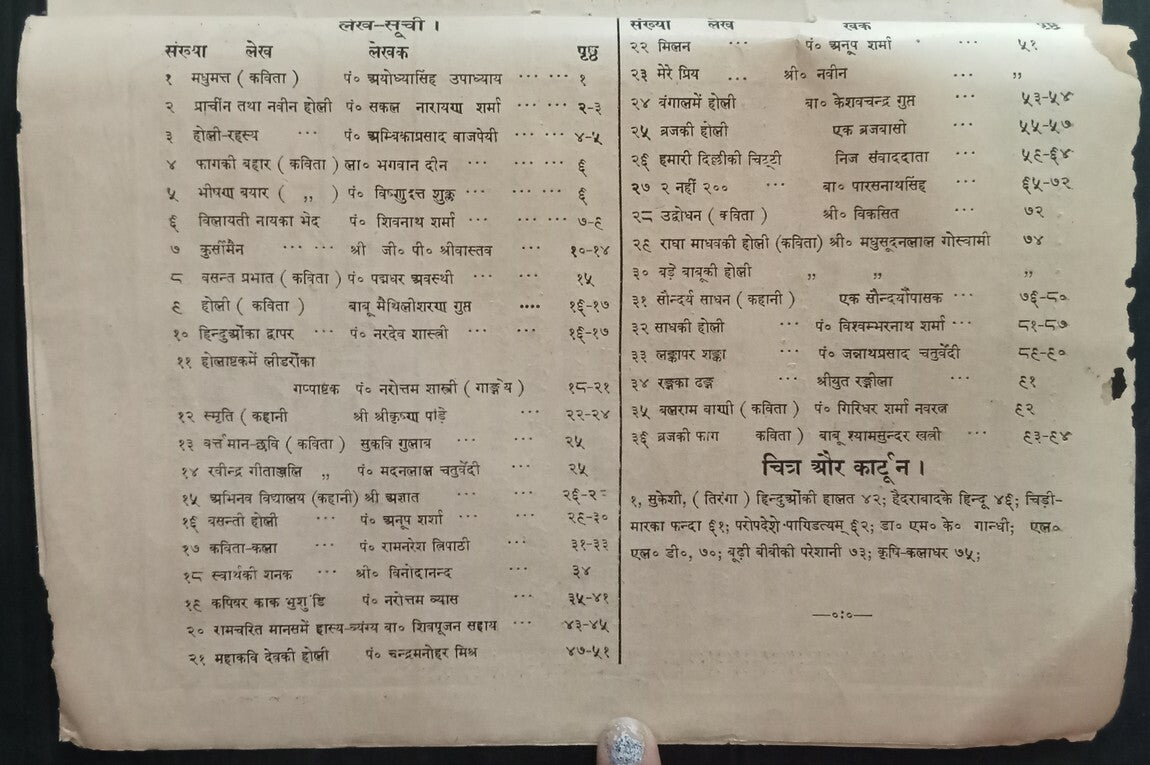 लेख-सूची ।
संख्या लेख लेखक पृष्ठ
१ मधुमत्त ( कविता ) पं० अयोध्यासिंह उपाध्याय ... ... १
२ प्राचीन तथा नवीन होली पं० सकल नारायण शर्मा ... ... २-३
३ होली-रहस्य ... पं० अम्बिकाप्रसाद वाजपेयी ... ... ४-५
४ फागकी बहार ( कविता ) ला० भगवान दीन ... ... ... ६
५ भीषण बयार ( ,, ) पं० विष्णुदत्त शुक्ल ... ... ... ६
६ विलायती नायका भेद पं० शिवनाथ शर्मा ... ... ... ७-९
७ कुर्सीमैन ... ... श्री जी० पी० श्रीवास्तव ... १०-१४
८ वसन्त प्रभात ( कविता ) पं० पद्मधर अवस्थी ... ... १५
९ होली ( कविता ) बाबू मैथिलीशरण गुप्त .... १६-१७
१० हिन्दुओंका द्वापर ... पं० नरदेव शास्त्री ... ... १६-१७
११ होलाष्टकमें लीडरोंका
गप्पाष्टक पं० नरोत्तम शास्त्री ( गाङ्गेय ) १८-२१
१२ स्मृति ( कहानी श्री श्रीकृष्ण पांड़े ... २२-२४
१३ वर्त्तमान-छवि ( कविता ) सुकवि गुलाब ... ... २५
१४ रवीन्द्र गीताञ्जलि ,, पं० मदनलाल चतुर्वेदी ... २५
१५ अभिनव विद्यालय (कहानी) श्री अज्ञात ... ... २६-२८
१६ वसन्ती होली ... पं० अनूप शर्मा ... ... २९-३०
१७ कविता-कला ... पं० रामनरेश त्रिपाठी ... ३१-३३
१८ स्वार्थकी शनक ... श्री० विनोदानन्द ... ३४
१९ कपिवर काक भुशुंडि पं० नरोत्तम व्यास ... ३५-४१
२० रामचरित मानसमें हास्य-व्यंग्य बा० शिवपूजन सहाय ... ४३-४५
२१ महाकवि देवकी होली पं० चन्द्रमनोहर मिश्र ४७-५१
संख्या लेख खक
२२ मिलन ... पं० अनूप शर्मा ... ५१
२३ मेरे प्रिय ... श्री० नवीन ... ,,
२४ बंगालमें होली बा० केशवचन्द्र गुप्त ... ५३-५४
२५ ब्रजकी होली एक ब्रजवासी ... ५५-५७
२६ हमारी दिल्लीकी चिट्टी निज संवाददाता ... ५९-६४
२७ २ नहीं २०० ... बा० पारसनाथसिंह ... ६५-७२
२८ उद्बोधन ( कविता ) श्री० विकसित ... ७२
२९ राधा माधवकी होली (कविता) श्री० मधुसूदनलाल गोस्वामी ७४
३० बड़े बाबूकी होली ,, ,, ,,
३१ सौन्दर्य साधन ( कहानी ) एक सौन्दर्योपासक ... ७६-८०
३२ साधकी होली ... पं० विश्वम्भरनाथ शर्मा ... ८१-८७
३३ लङ्कापर शङ्का ... पं० जन्नाथप्रसाद चतुर्वेदी ८९-९०
३४ रङ्गका ढङ्ग ... श्रीयुत रङ्गीला ... ९१
३५ बलराम वाणी ( कविता ) पं० गिरिधर शर्मा नवरत्न ९२
३६ ब्रजकी फाग कविता ) बाबू श्यामसुन्दर खत्री ... ९३-९४
चित्र और कार्टून ।
१, सुकेशी, ( तिरंगा ) हिन्दुओंकी हालत ४२; हैदराबादके हिन्दू ४६; चिड़ी-
मारका फन्दा ६१; परोपदेशे पाण्डित्यम् ६२; डा० एम० के० गान्धी; एल०
एल० डी०, ७०; बूढ़ी बीवीकी परेशानी ७३; कृषि-कलाधर ७५;
—०:०—